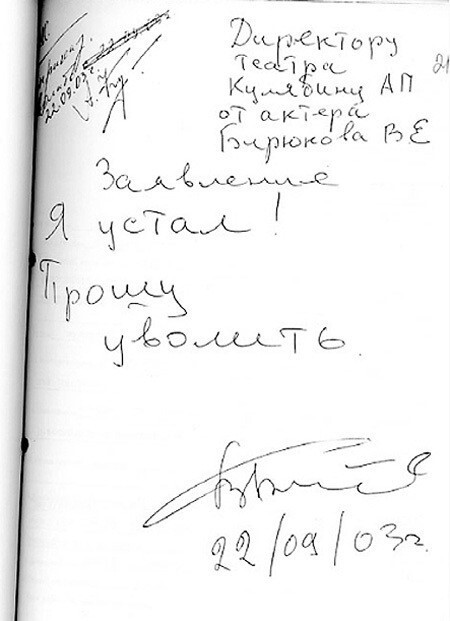 Директору
театра
Кулябину АП
от актера
Бирюкова ВЕ
21
22.09.03г.
Заявление
Я устал!
Прошу
уволить.
22/09/03г.